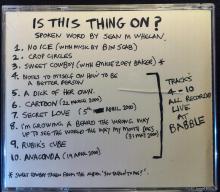 IS THIS THING ON?
SPOKEN WORD BY SEAN M WHELAN.
1. NO ICE (WITH MUSIC BY BEN SEAB)
2. CROP CIRCLES
3. SWEET COWBOY (WITH EMILIE ZOEY BAKER) *
4. NOTES TO MYSELF ON HOW TO BE A BETTER PERSON
5. A DICK OF HER OWN.
6. CARTOON (22 MARCH 2000)
7. SECRET LOVE (5TH APRIL 2000)
8. I'M GROWING A BEARD THE WRONG WAY
UP TO SEE THE WORLD THE WAY MY MONTE DOES
(31 MAY 2000)
9. RUBIK'S CUBE
10. ANACONDA (19 APRIL 2000)
TRACKS
4 - 10
ALL RECORDED
LIVE
AT
BABBLE
* SWEET COWBOY TAKEN FROM THE ALBUM